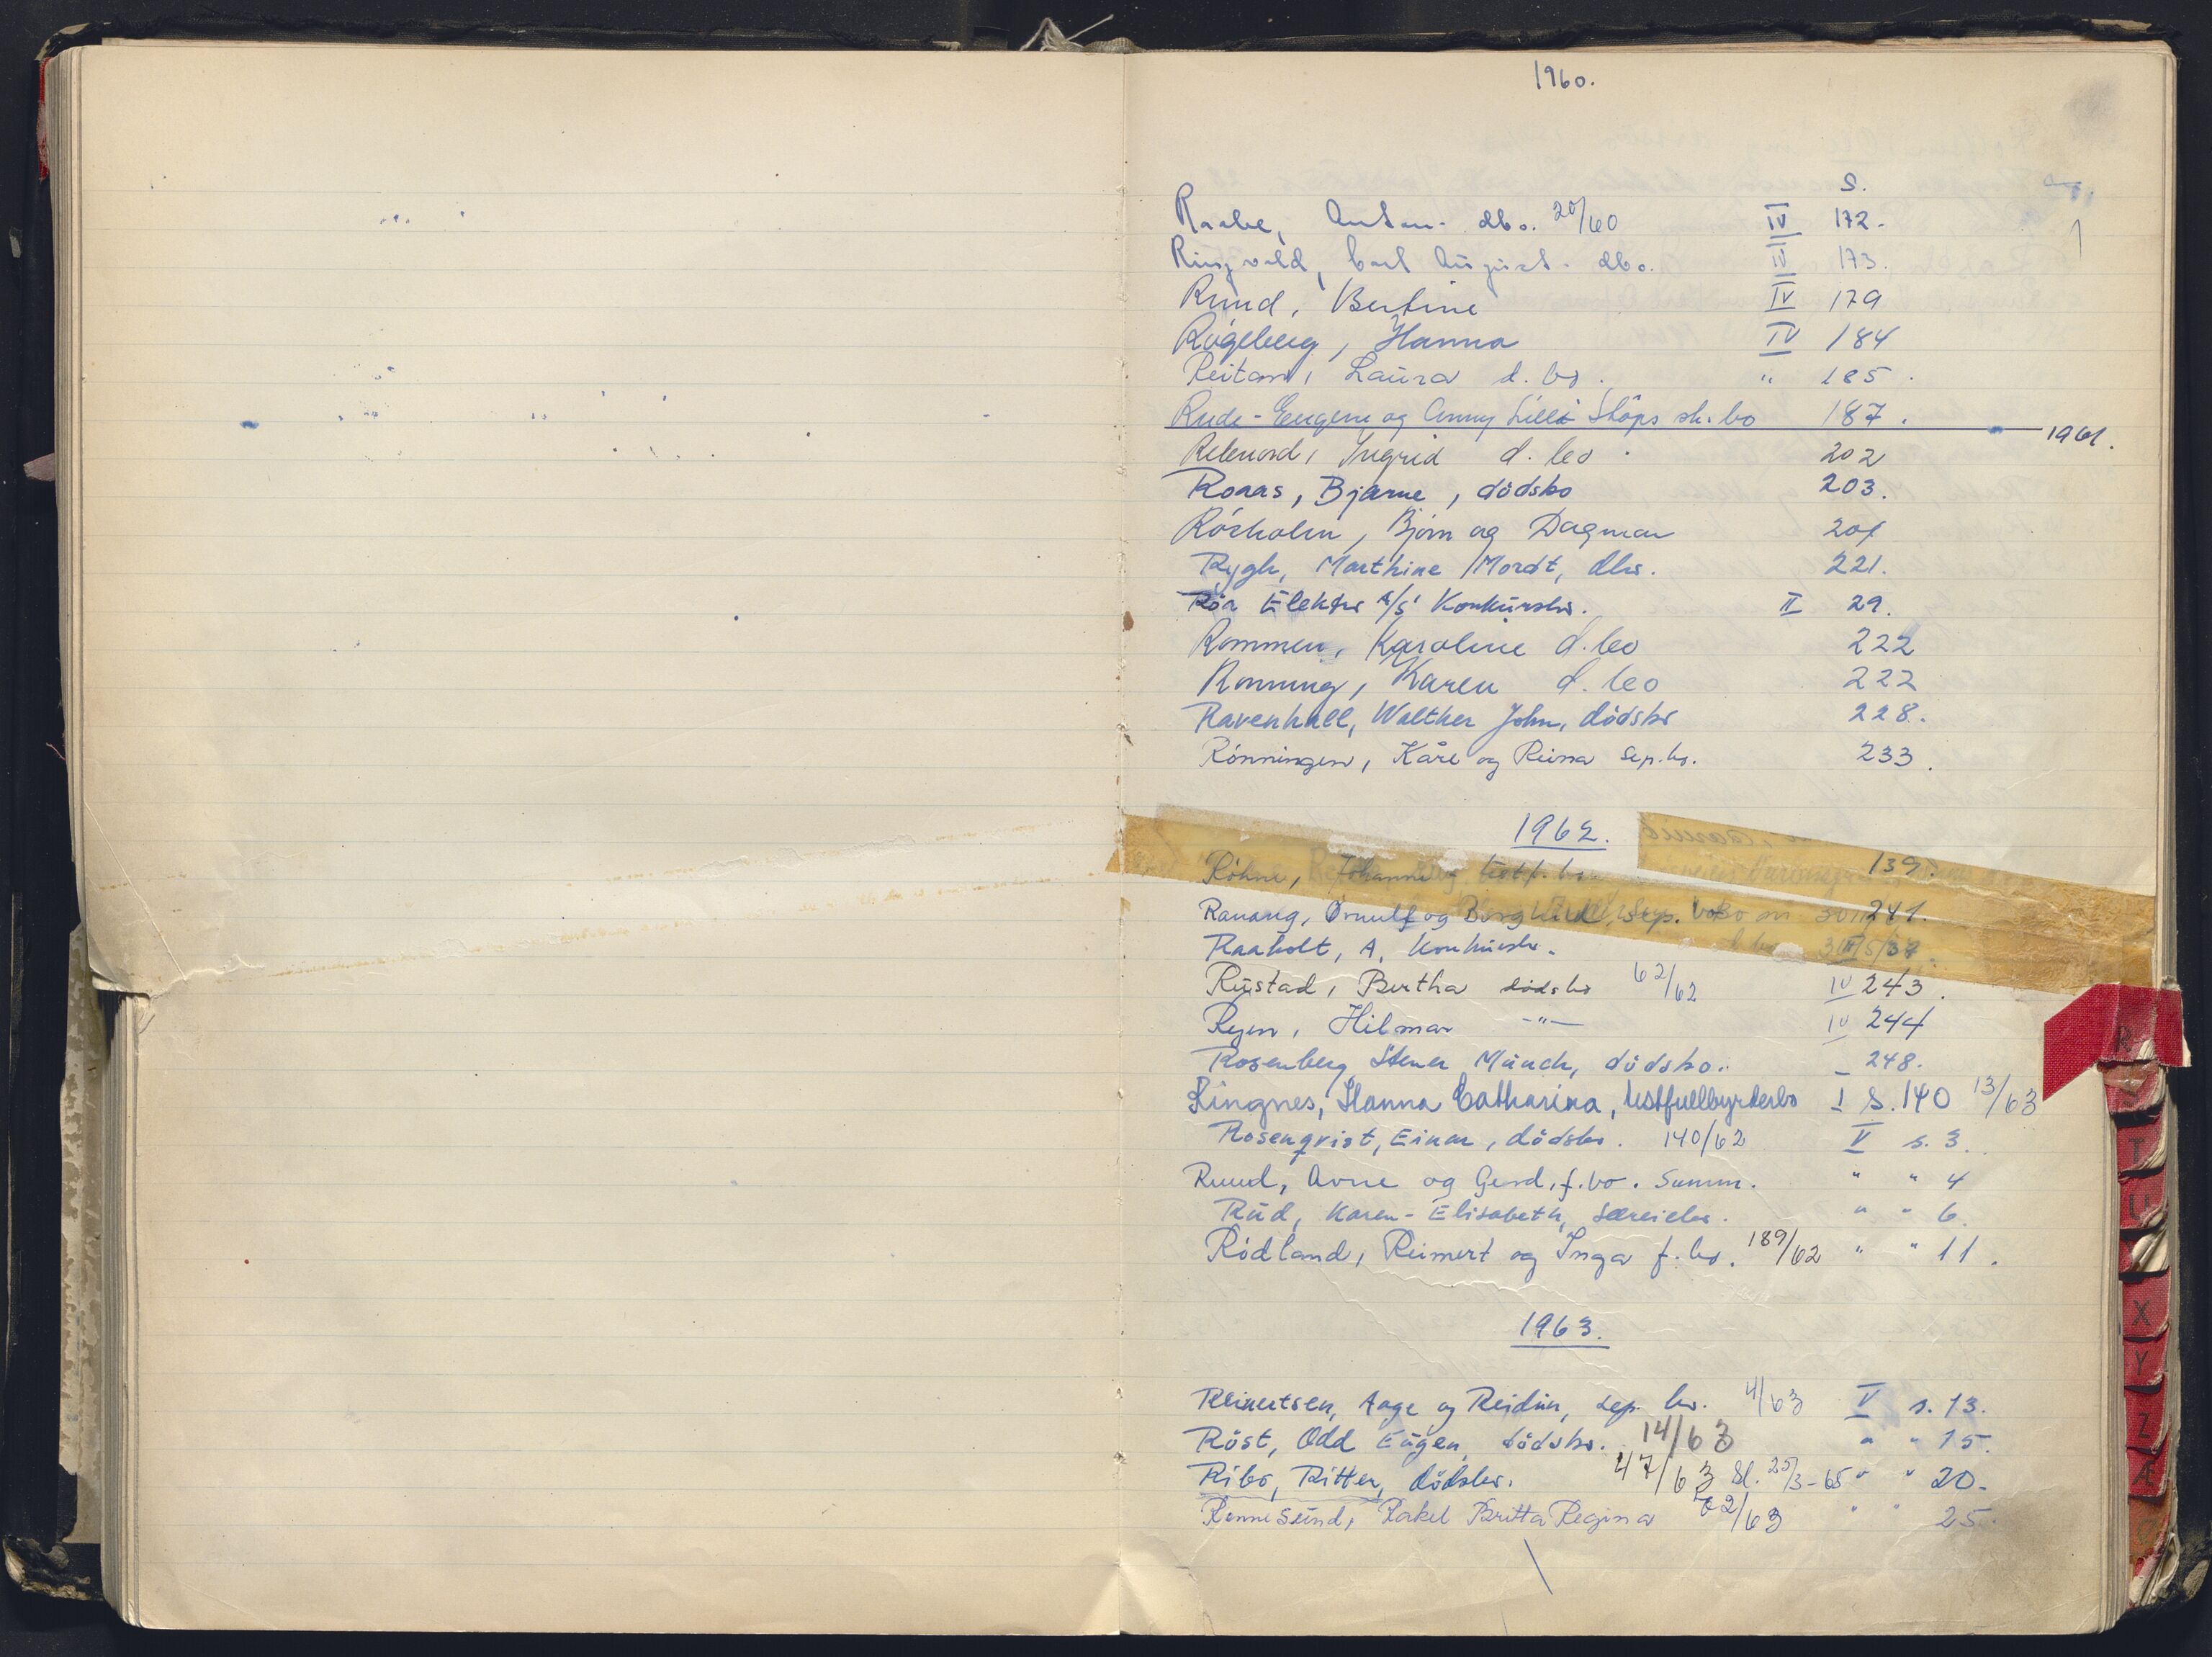 1960.
S.
Raabe, Anton. dbo. 20/60 IV 172.
Ringvold, Carl August. dbo. IV 173.
Ruud, Bertine IV 179
Rögeberg, Hanna IV 184
Reitan, Laura d. bo. " 185.
Rude-Eugene og Anny Lilli Sköps sk. bo 187.
1961.
Ingrid d. bo. 202
Roaas, Bjarne, dödsbo 203.
Rösholm, Björn og Dagmar 204
Rygh, Marthine Mordt, dbo. 221.
Röa Elektro A/S' Konkursbo. II 29.
Rommen, Karoline d. bo 222
Ronning, Karen d. bo 222
Ravenhall, Walther John, dödsbo 228.
Rönningen, Kåre og Reina Sep. bo. 233.
1962.
Röhne, Johanne testf. bo. 139.
Ranang, Ørnulf og Borghild, Sep. bo 241.
Raaholt, A. Konkursbo. III s/37.
Rustad, Bertha dödsbo 62/62 IV 243.
Ryen, Hilmar -"- IV 244
Rosenberg Stener Munch, dödsbo. - 248.
Ringnes, Hanna Catharina, testfullbyrderbo I S. 140 13/63
Rosenqvist, Einar, dödsbo. 140/62 V s. 3.
Ruud, Arne og Gerd, f. bo. Summ. " " 4
Rud, Karen-Elisabeth, Særeiebo. " " 6.
Rödland, Reimert og Inga f. bo. 189/62 " " 11.
1963.
Reinertsen, Aage og Reidun, sep. bo. 4/63 V s. 13.
Röst, Odd Eugen, dödsbo. 14/63 " " 15.
Ribo, Ritter, dödsbo. 47/63 Sl. 25/3-65 " " 20.
Rennesund, Rakel Britta Regina 62/63 " " 25.
R
T
U
X
Y
Z
Æ